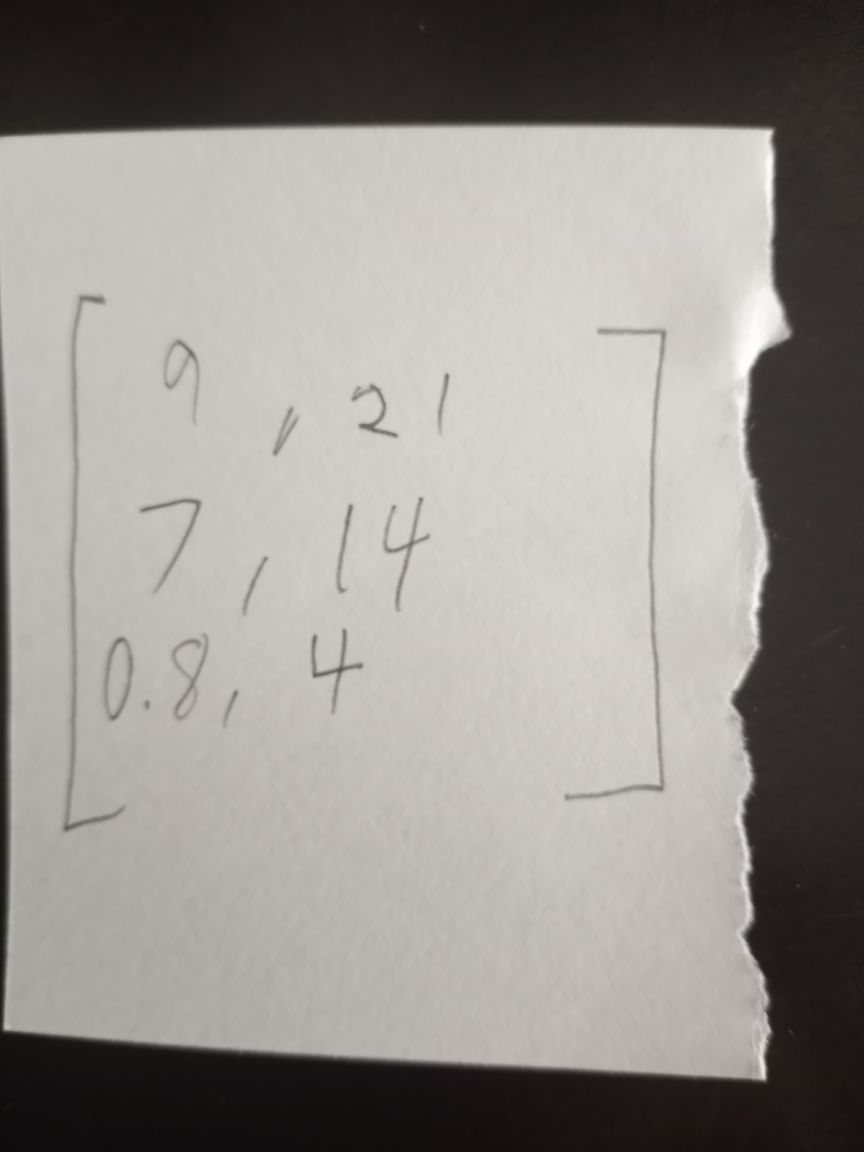 9, 21
7, 14
0.8, 4